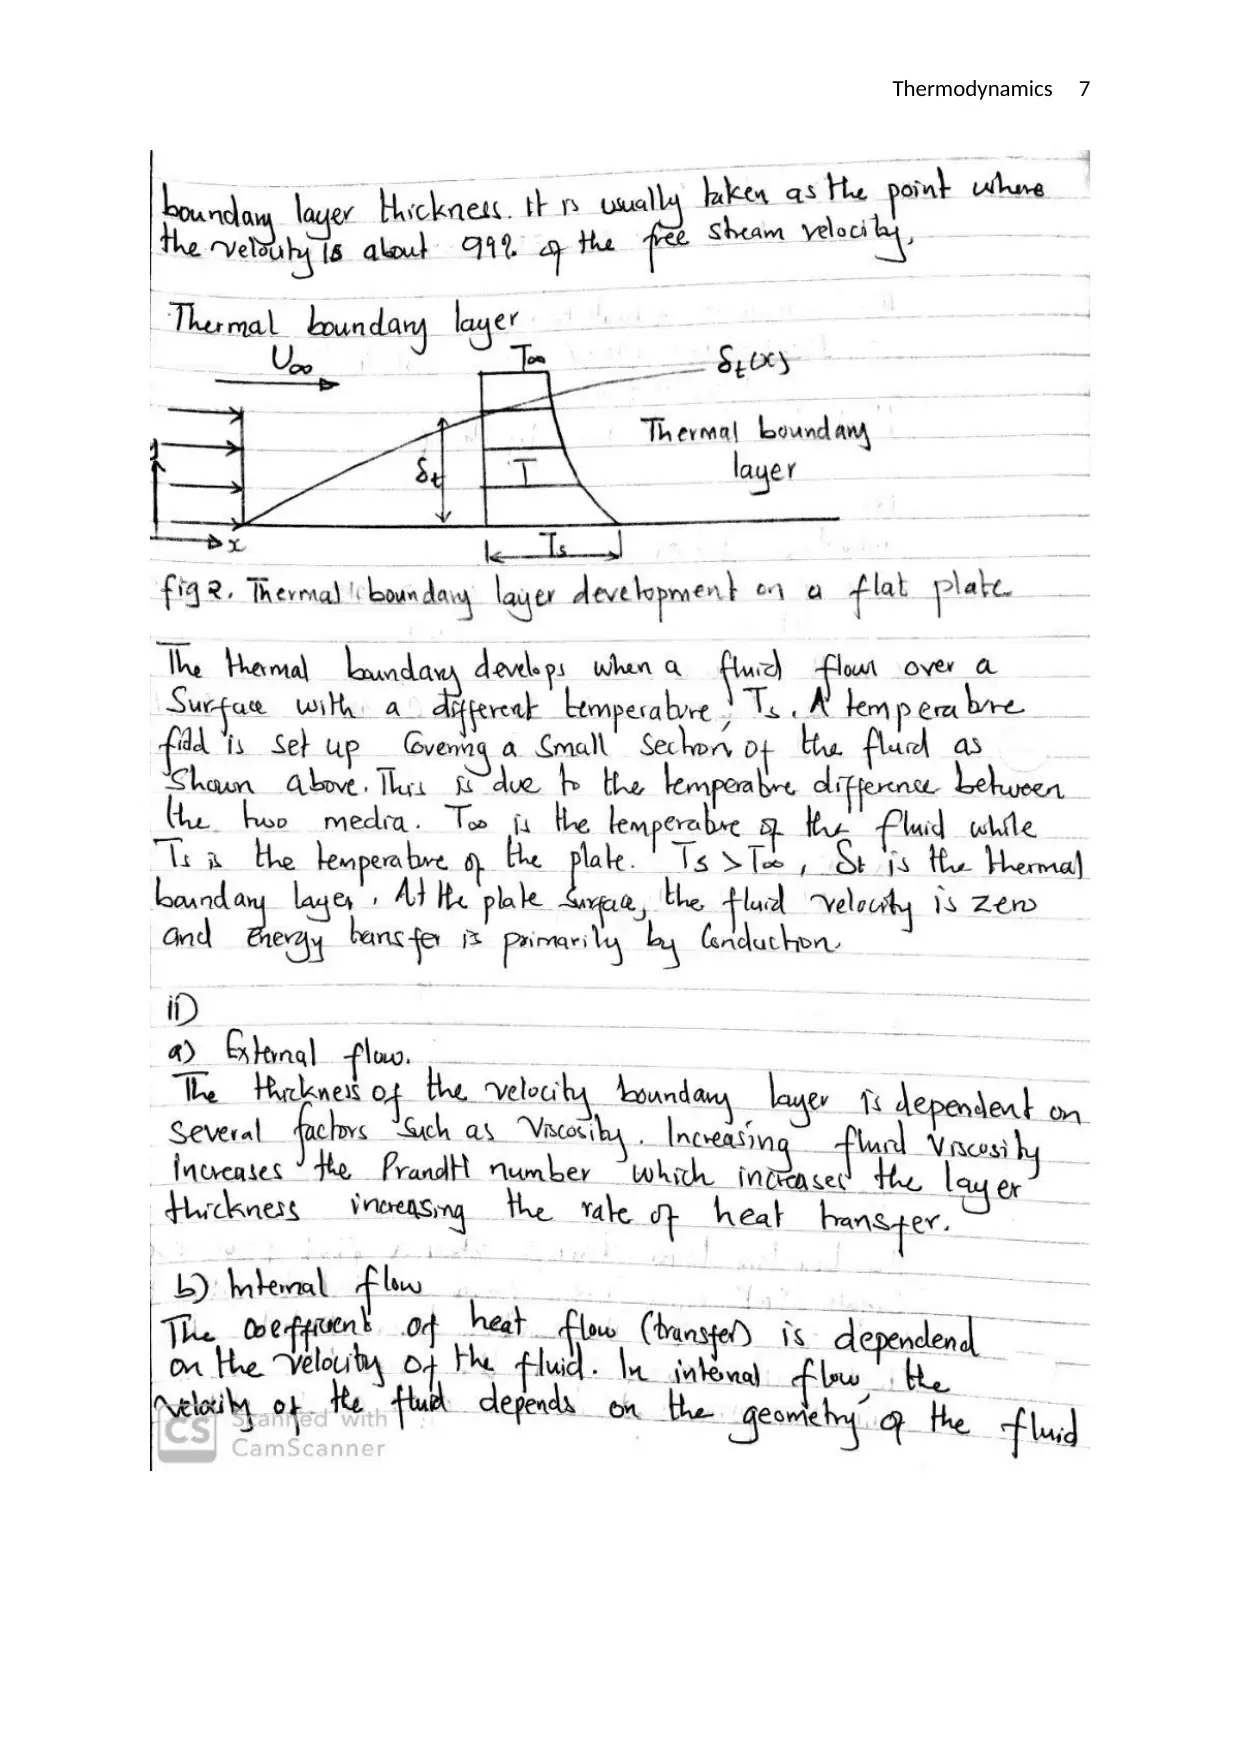 Thermodynamics 7
boundary layer thickness. It is usually taken as the point where
the velocity is about 99% of the free stream velocity.
Thermal boundary layer
U∞
T∞
δt(x)
Thermal boundary
layer
δt
T
x
Ts
fig 2. Thermal boundary layer development on a flat plate.
The thermal boundary develops when a fluid flows over a
Surface with a different temperature, Ts. A temperature
field is set up Covering a small section of the fluid as
Shown above. This is due to the temperature difference between
the two media. T∞ is the temperature of the fluid while
Ts is the temperature of the plate. Ts > T∞, δt is the thermal
boundary layer. At the plate surface, the fluid velocity is zero
and Energy transfer is primarily by Conduction.
ii)
a) External flow.
The thickness of the velocity boundary layer is dependent on
several factors such as Viscosity. Increasing fluid Viscosity
increases the Prandtl number which increases the layer
thickness increasing the rate of heat transfer.
b) Internal flow
The coefficient of heat flow (transfer) is dependend
on the velocity of the fluid. In internal flow, the
velocity of the fluid depends on the geometry of the fluid
CS Scanned with
CamScanner